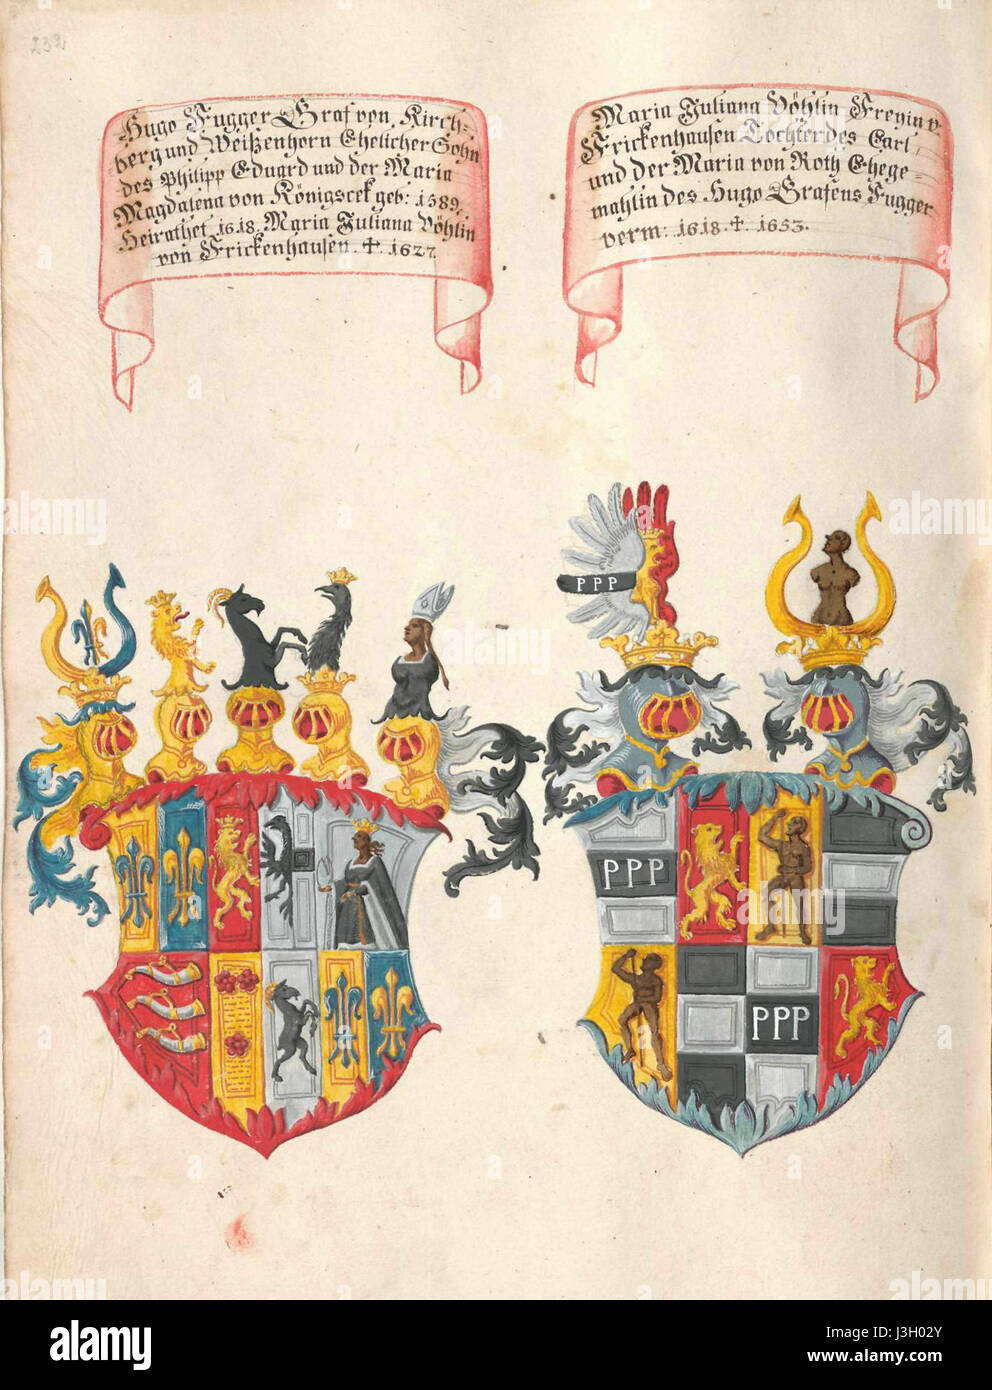 232
Hugo Fugger Graf von Kirch-
berg und Weißenhorn Ehelicher Sohn
des Philipp Eduard und der Maria
Magdalena von Königseck geb: 1589.
Heirathet 1618. Maria Juliana Vöhlin
von Frickenhausen. ✝. 1627.
Maria Juliana Vöhlin Freyin v.
Frickenhausen Tochter des Carl
und der Maria von Roth Ehege-
mahlin des Hugo Grafens Fugger
verm: 1618. ✝. 1653.
PPP
PPP
PPP
alamy
Image ID: J3H02Y
www.alamy.com